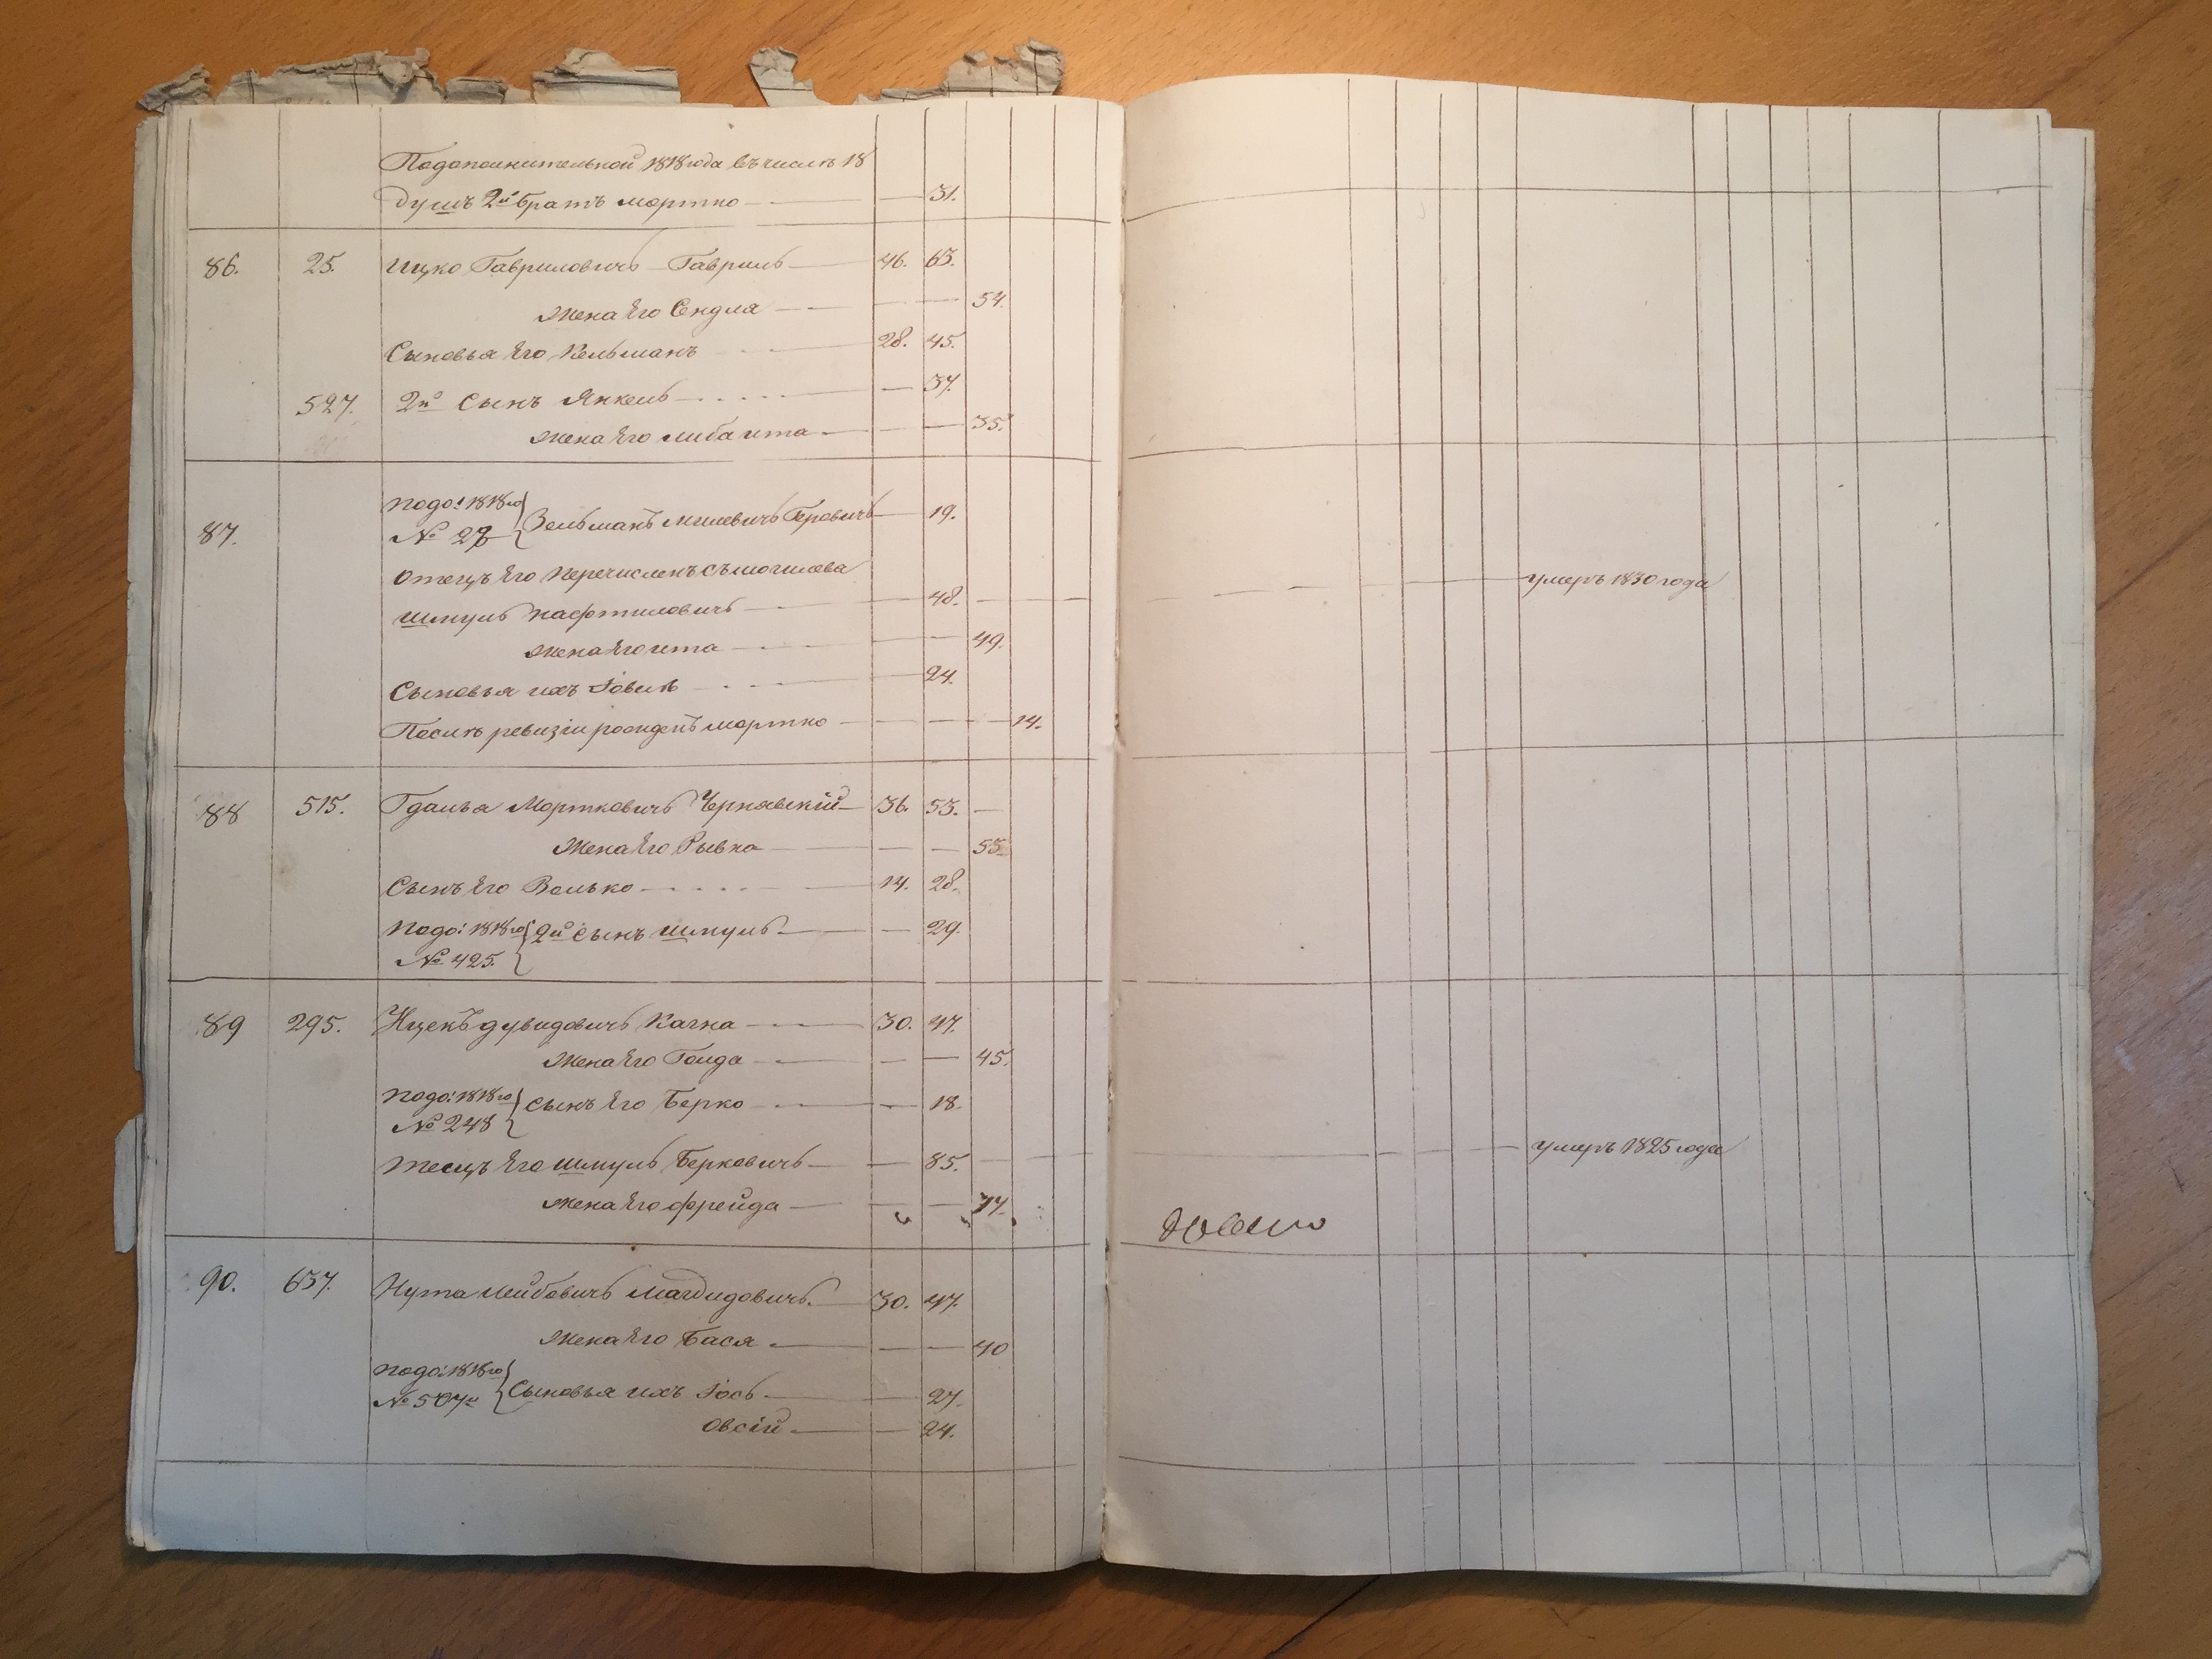 Подополнительной 1818 года въ числѣ 18
душъ 2й братъ Мортко — 31.
86. 25. Ицко Гавриловичъ Гавриль — 46. 63.
Жена Его Сендля — 54.
Сыновья Его Кельманъ — 28. 45.
527. 2й Сынъ Янкель — 37.
Жена Его Либа Ита — 35.
87. подо: 1818го № 27 Зельманъ Беровичъ — 19.
Отецъ Его перечисленъ съ Могилева
Шмуль Нафтиловичъ — 48. — умеръ 1830 года
Жена Его Ита — 49.
Сыновья ихъ Іовиль — 24.
Послѣ ревизіи рожденъ Мортко — 14.
88 515. Гдалья Мортковичъ Чернявскій — 36. 53. —
Жена Его Рывка — 55.
Сынъ Его Волько — 14. 28.
подо: 1818го № 425. 2й сынъ Шмуль — 29.
89 295. Ицекъ Дувидовичъ Качка — 30. 47.
Жена Его Голда — 45.
подо: 1818го № 248 сынъ Его Берко — 18.
Тесць Его Шмуль Берковичъ — 85. — умеръ 1825 года
Жена Его Фрейда — 77.
90. 637. Нута Лейбовичъ — 30. 47.
Жена Его Бася — 40
подо: 1818го № 507й Сыновья ихъ Іось — 27.
Овсій — 24.